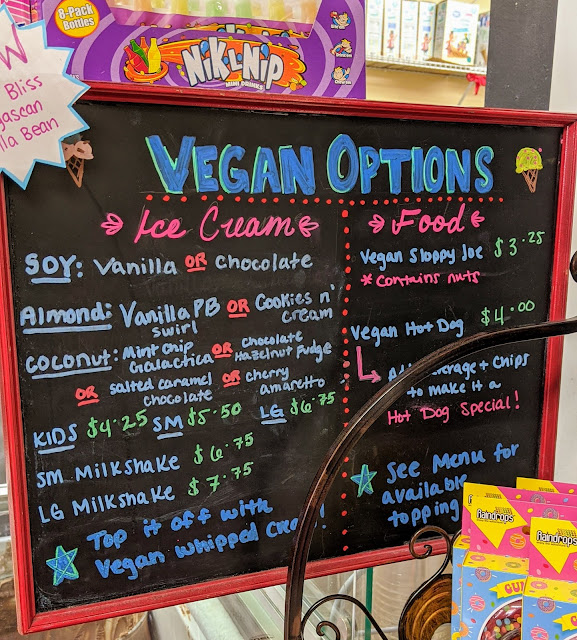 8-Pack
Bottles
NIK-L-NIP
MINI DRINKS
W
Bliss
gascan
lla Bean
VEGAN OPTIONS
Ice Cream
SOY: Vanilla OR Chocolate
Almond: Vanilla PB OR Cookies n'
swirl cream
Coconut: Mint Chip OR chocolate
Galactica Hazelnut Fudge
OR salted caramel OR cherry
chocolate amaretto
KIDS $4.25 SM $5.50 LG $6.75
SM Milkshake $6.75
LG Milkshake $7.75
Top it off with
Vegan whipped cream!
Food
Vegan Sloppy Joe $3.25
*contains nuts
Vegan Hot Dog $4.00
+ chips
to make it a
Hot Dog Special!
See Menu for
available
topping
Raindrops
Raindrops
GUM